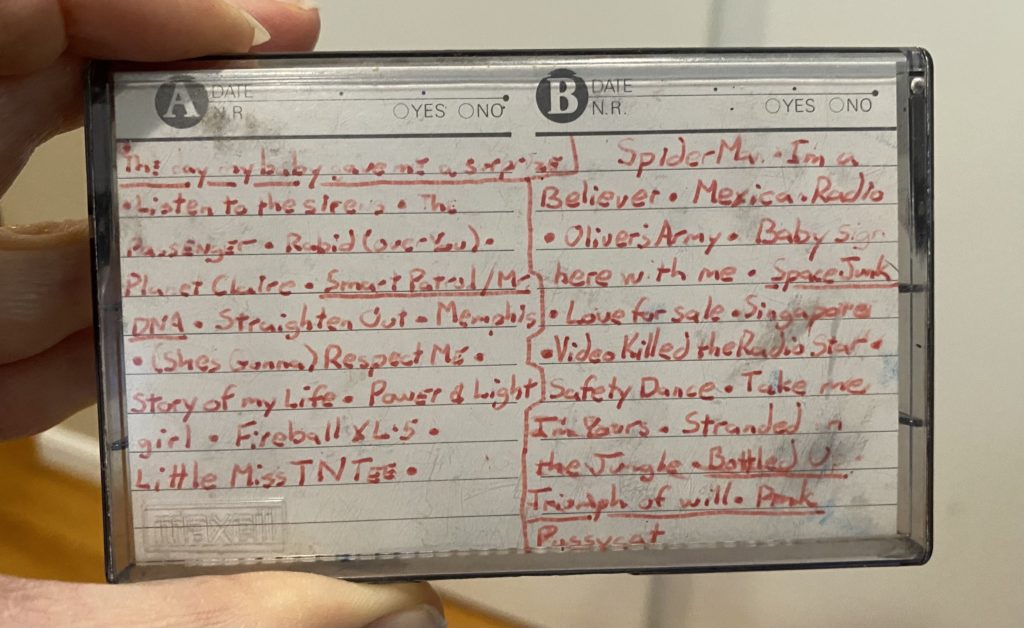 A DATE
N.R.
○YES ○NO
The day my baby gave me a surprize
• Listen to the sirens • The
Passenger • Rabid (over You) •
Planet Claire • Smart Patrol/Mr
DNA • Straighten Out • Memphis
• (Shes Gonna) Respect Me •
Story of my Life • Power & Light
girl • Fireball XL•5 •
Little Miss TNTee •
maxell
B DATE
N.R.
○YES ○NO
Spider • I'm a
Believer • Mexican Radio
• Oliver's Army • Baby Sign
here with me • Space Junk
• Love for sale • Singapore
• Video Killed the Radio Star •
Safety Dance • Take me
I'm Yours • Stranded in
the Jungle • Bottled
Triumph of will • Pink
Pussycat